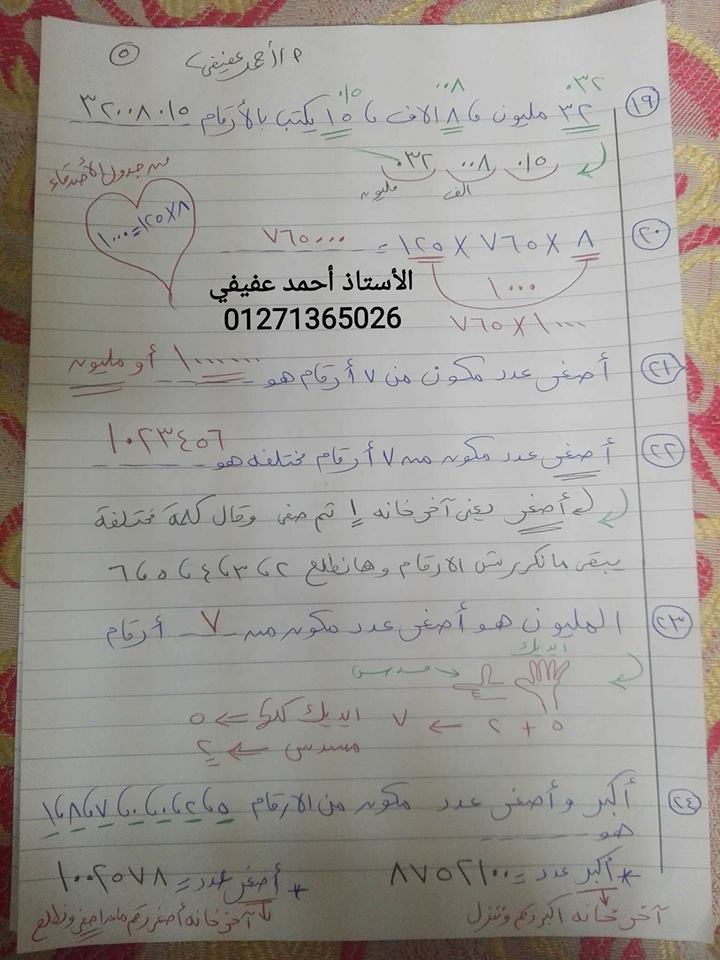 ٥
م / أحمد عفيفي
٠٣٢ ٠٠٨ ٠١٥
١٩ ٣٢ مليون ، ٨ الاف ، ١٥ يكتب بالأرقام ٣٢٠٠٨٠١٥
٠٣٢ ٠٠٨ ٠١٥
مليون الف
من جدول الأصدقاء
٨ × ١٢٥ = ١٠٠٠
٢٠ ٨ × ٧٦٥ × ١٢٥ = ٧٦٥٠٠٠
١٠٠٠
٧٦٥ × ١٠٠٠
الأستاذ أحمد عفيفي
01271365026
٢١ أصغر عدد مكون من ٧ أرقام هو ١٠٠٠٠٠٠ أو مليون
٢٢ أصغر عدد مكون من ٧ أرقام مختلفة هو ١٠٢٣٤٥٦
أصغر يعني آخر خانة ١ ثم صفر وقال كلمة مختلفة
يبقى ما نكررش الارقام وهانطلع ٢ ، ٣ ، ٤ ، ٥ ، ٦
٢٣ المليون هو أصغر عدد مكون من ٧ أرقام
ايديك
مسدس
٥ + ٢ ← ٧ ايديك كلها ⇐ ٥
مسدس ⇐ ٢
٢٤ أكبر وأصغر عدد مكون من الارقام ٥ ، ٢ ، ٠ ، ٠ ، ٧ ، ٨ ، ١
هو
* أكبر عدد = ٨٧٥٢١٠٠
* أصغر عدد = ١٠٠٢٥٧٨
آخر خانة اكبر رقم وننزل
آخر خانة أصغر رقم ماعدا صفر ونطلع